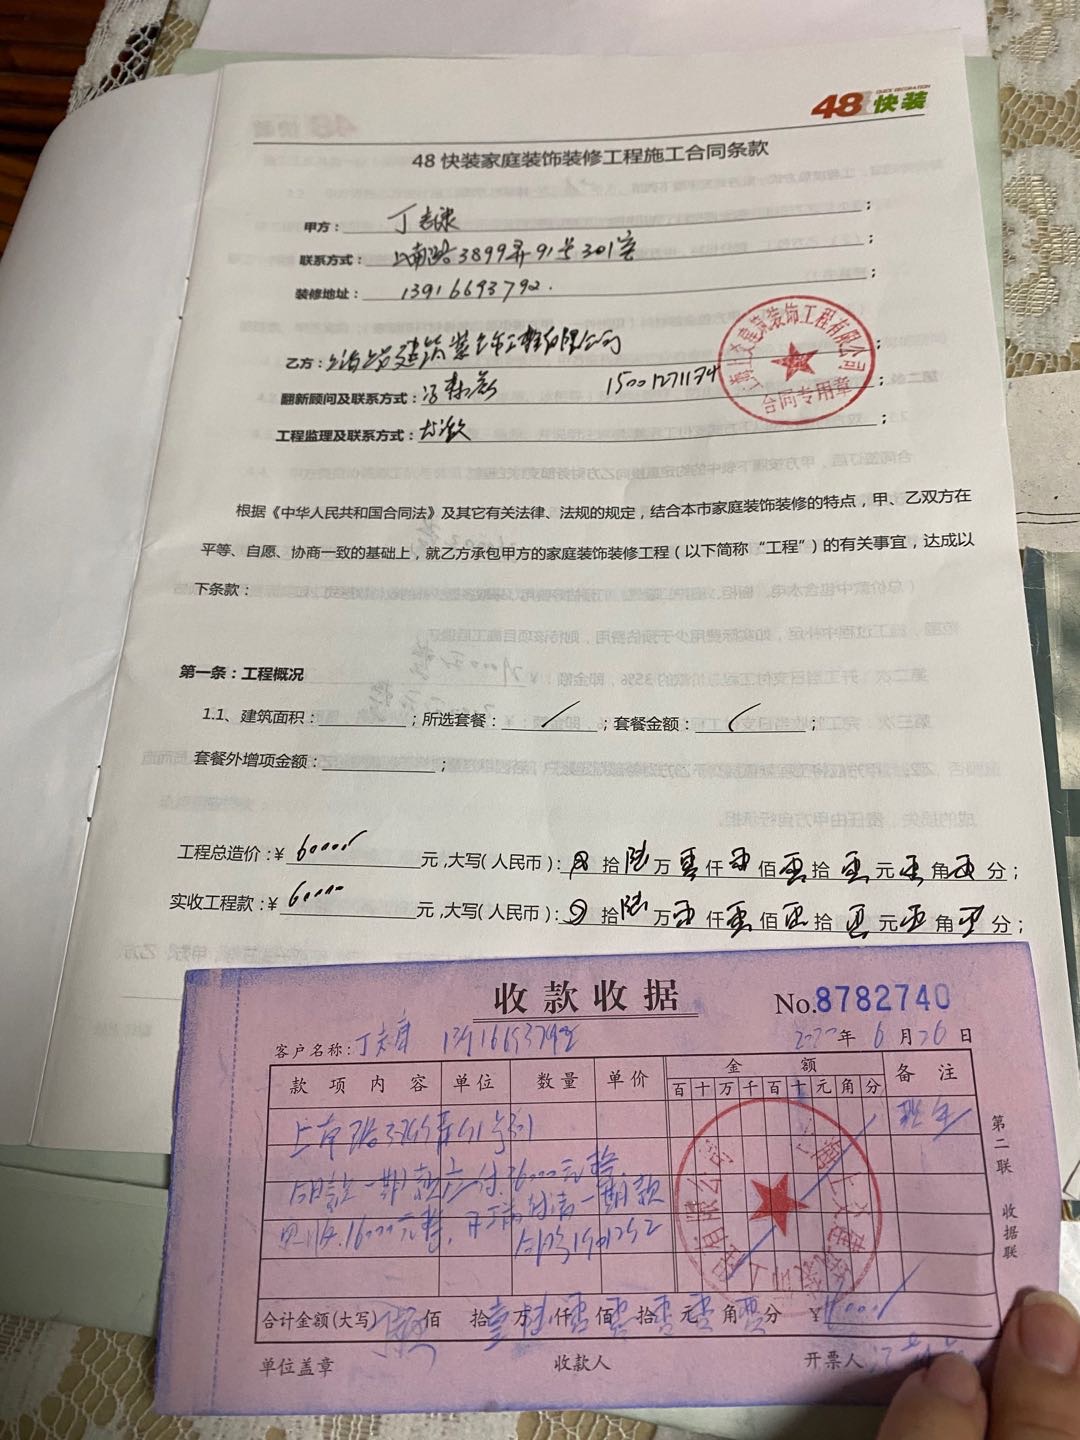 48 快装
QUICK DECORATION
48 快装家庭装饰装修工程施工合同条款
甲方：丁志;
联系方式：上南路3899弄91号301室;
装修地址：13916693792.;
乙方：上海上交建筑装饰工程有限公司;
翻新顾问及联系方式：15001271174;
工程监理及联系方式：;
上海上交建筑装饰工程有限公司
合同专用章
根据《中华人民共和国合同法》及其它有关法律、法规的规定，结合本市家庭装饰装修的特点，甲、乙双方在
平等、自愿、协商一致的基础上，就乙方承包甲方的家庭装饰装修工程（以下简称“工程”）的有关事宜，达成以
下条款：
第一条：工程概况
1.1、建筑面积：；所选套餐：/；套餐金额：/；
套餐外增项金额：；
工程总造价：¥60000元,大写（人民币）：拾陆万零仟零佰零拾零元零角零分；
实收工程款：¥60000元,大写（人民币）：拾陆万零仟零佰零拾零元零角零分；
收款收据
No.8782740
客户名称：丁志 13916693792 年6月26日
款项内容 单位 数量 单价 金额 备注
百十万千百十元角分
上南路3899弄91号301
一期款应付36000元整
16000元整，付清一期款
合计金额(大写) 佰 拾壹万陆仟零佰零拾零元零角零分 ¥16000
单位盖章 收款人 开票人
第二联 收据联